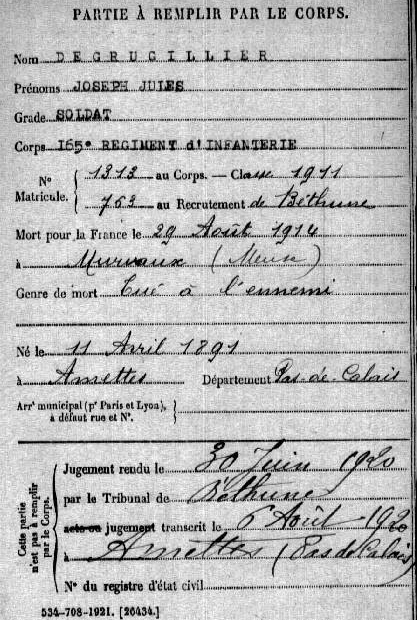 PARTIE À REMPLIR PAR LE CORPS.
Nom DEGRUGILLIER
Prénoms JOSEPH JULES
Grade SOLDAT
Corps 165e REGIMENT d'INFANTERIE
N° Matricule. { 1313 au Corps. — Classe 1911
763 au Recrutement de Béthune
Mort pour la France le 29 Août 1914
à Murvaux (Meuse)
Genre de mort Tué à l'ennemi
Né le 11 Avril 1891
à Amettes Département Pas-de-Calais
Arrt municipal (pr Paris et Lyon),
à défaut rue et N°.
Cette partie n'est pas à remplir par le Corps.
Jugement rendu le 30 Juin 1920
par le Tribunal de Béthune
acte ou jugement transcrit le 6 Août 1920
à Amettes (Pas de Calais)
N° du registre d'état civil
534-708-1921. [26434.]